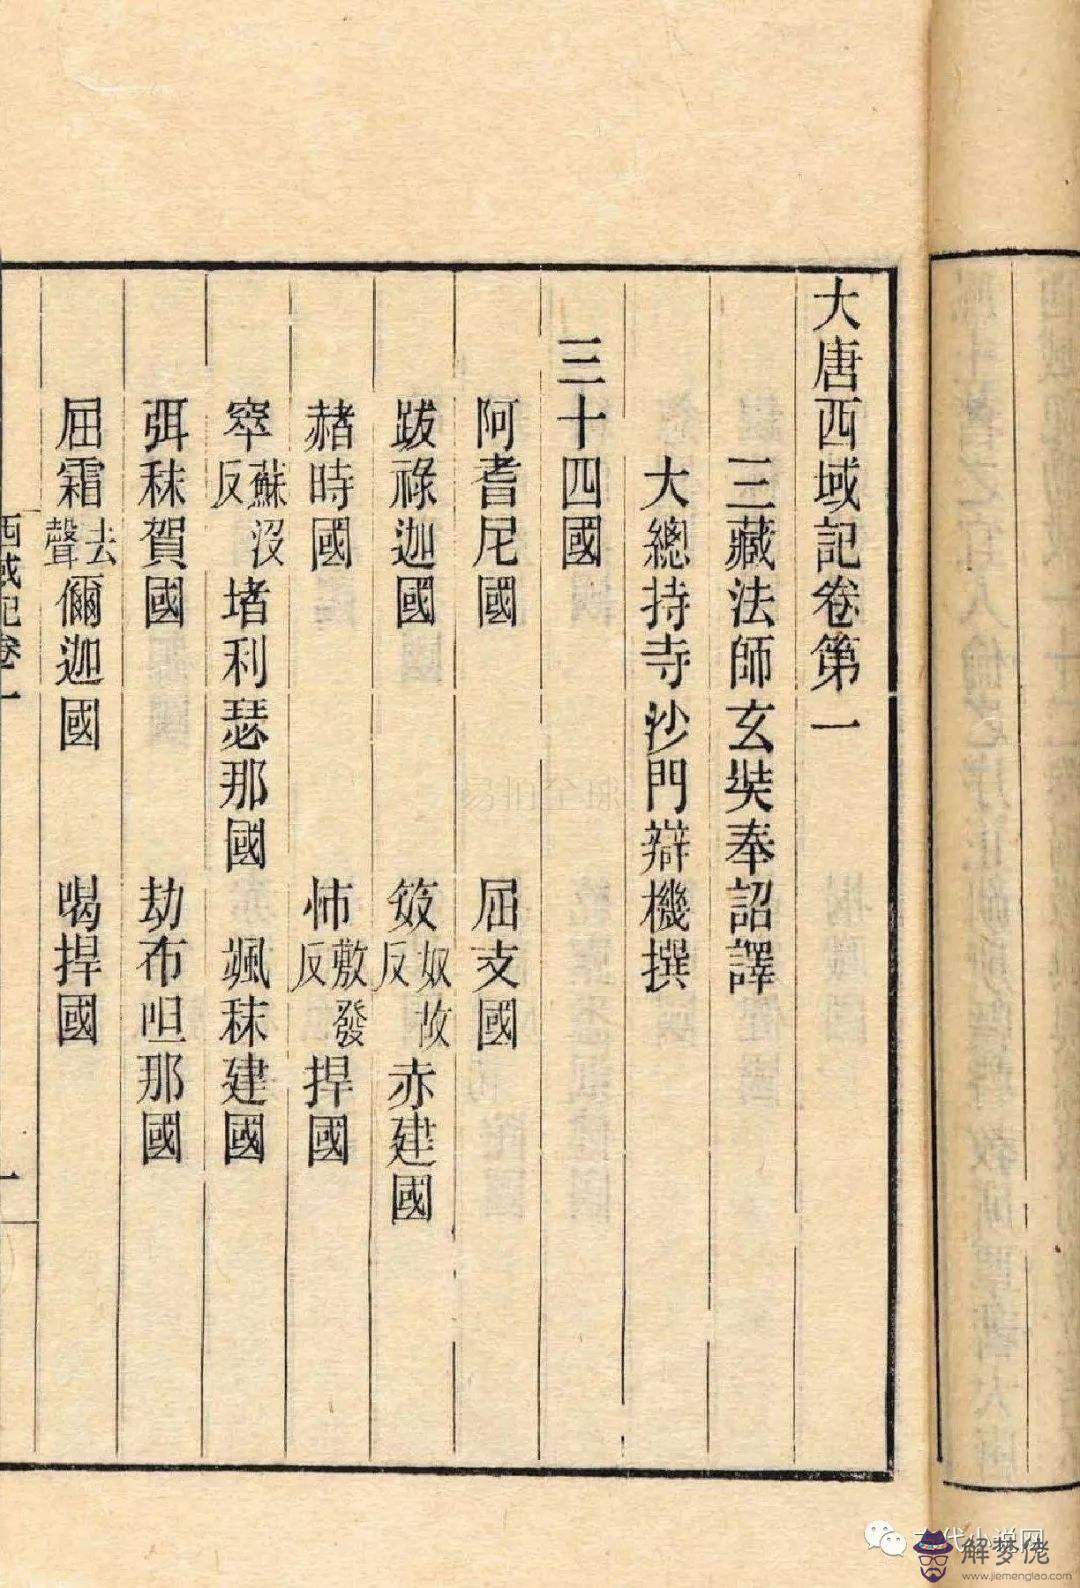 大唐西域記卷第一
三藏法師玄奘奉詔譯
大總持寺沙門辯機撰
三十四國
阿耆尼國 屈支國
跋祿迦國 笯奴故反赤建國
赭時國 㤄敷發反捍國
窣蘇没反堵利瑟那國 颯秣建國
弭秣賀國 劫布呾那國
屈霜去聲儞迦國 喝捍國
西域記卷一
一
古代小说网
解梦佬
www.jiemenglao.com